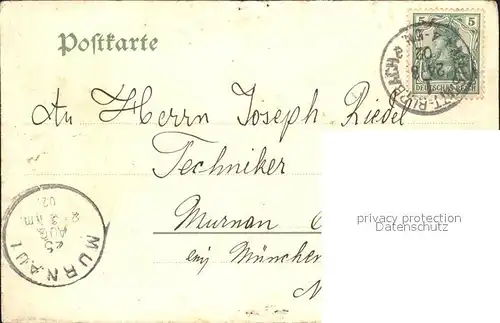 Postkarte
5 5
DEUTSCHES REICH
An Herrn Joseph Riedel
Techniker
Murnau
privacy protection
Datenschutz
München
MURNAU I
25
AUG
02.